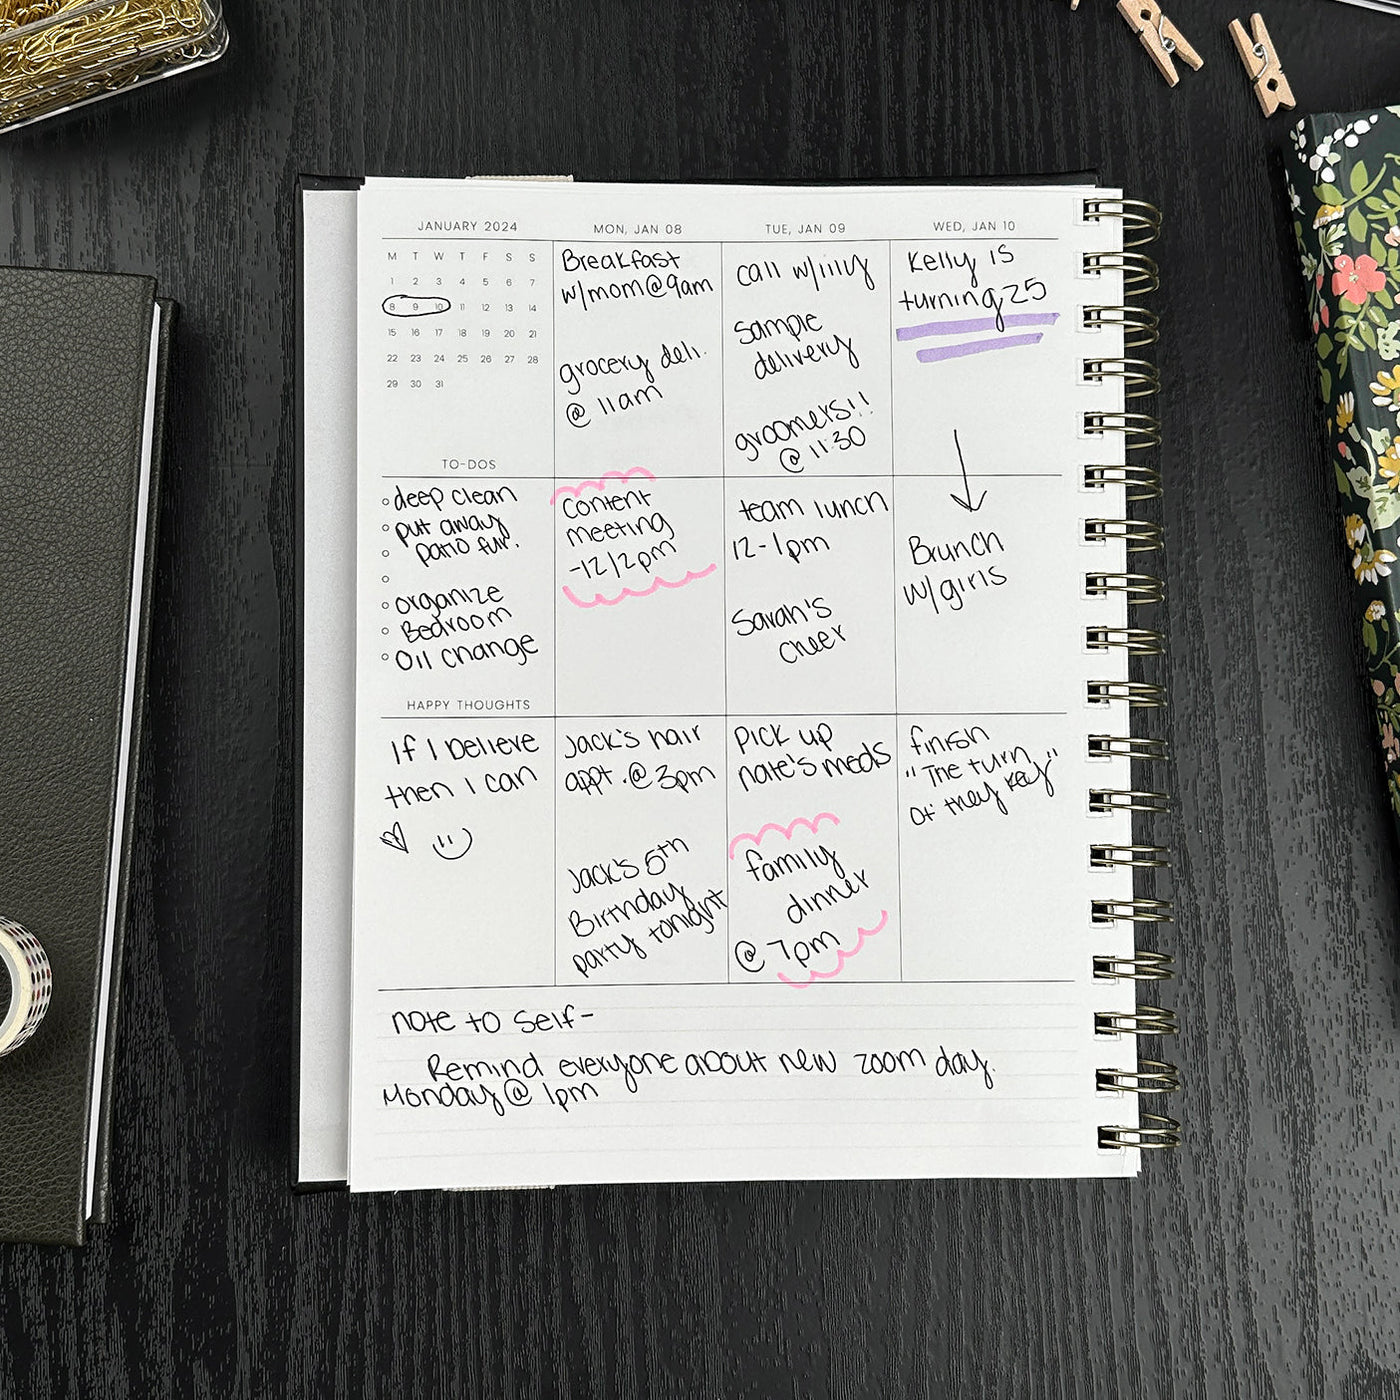 JANUARY 2024
M T W T F S S
1 2 3 4 5 6 7
8 9 10 11 12 13 14
15 16 17 18 19 20 21
22 23 24 25 26 27 28
29 30 31
TO-DOS
deep clean
put away
patio fur.
organize
Bedroom
Oil change
HAPPY THOUGHTS
If I believe
then I can
MON, JAN 08
Breakfast
w/mom@9am
grocery deli.
@ 11am
content
meeting
-12/2pm
Jack's hair
appt. @ 3pm
Jack's 5th
Birthday
party tonight
TUE, JAN 09
call w/lilly
Sample
delivery
groomers!!
@ 11:30
team lunch
12-1pm
Sarah's
cheer
Pick up
nate's meds
family
dinner
@ 7pm
WED, JAN 10
Kelly is
turning 25
Brunch
w/girls
finish
"The turn
of they Key"
note to self-
Remind everyone about new zoom day.
Monday @ 1pm